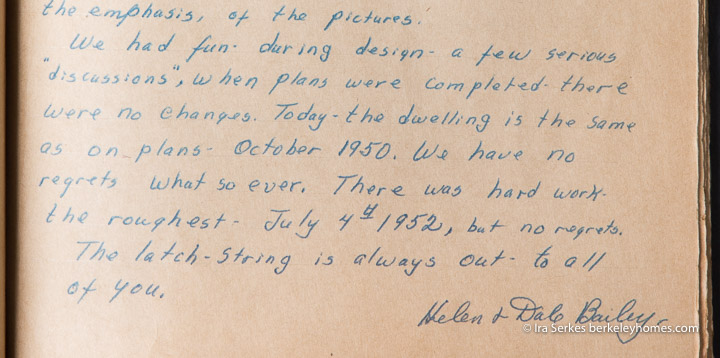 the emphasis, of the pictures.
We had fun- during design- a few serious
"discussions", when plans were completed- there
were no changes. Today- the dwelling is the same
as on plans- October 1950. We have no
regrets what so ever. There was hard work-
the roughest- July 4th 1952, but no regrets.
The latch-string is always out- to all
of you.
Helen & Dale Bailey.
© Ira Serkes berkeleyhomes.com